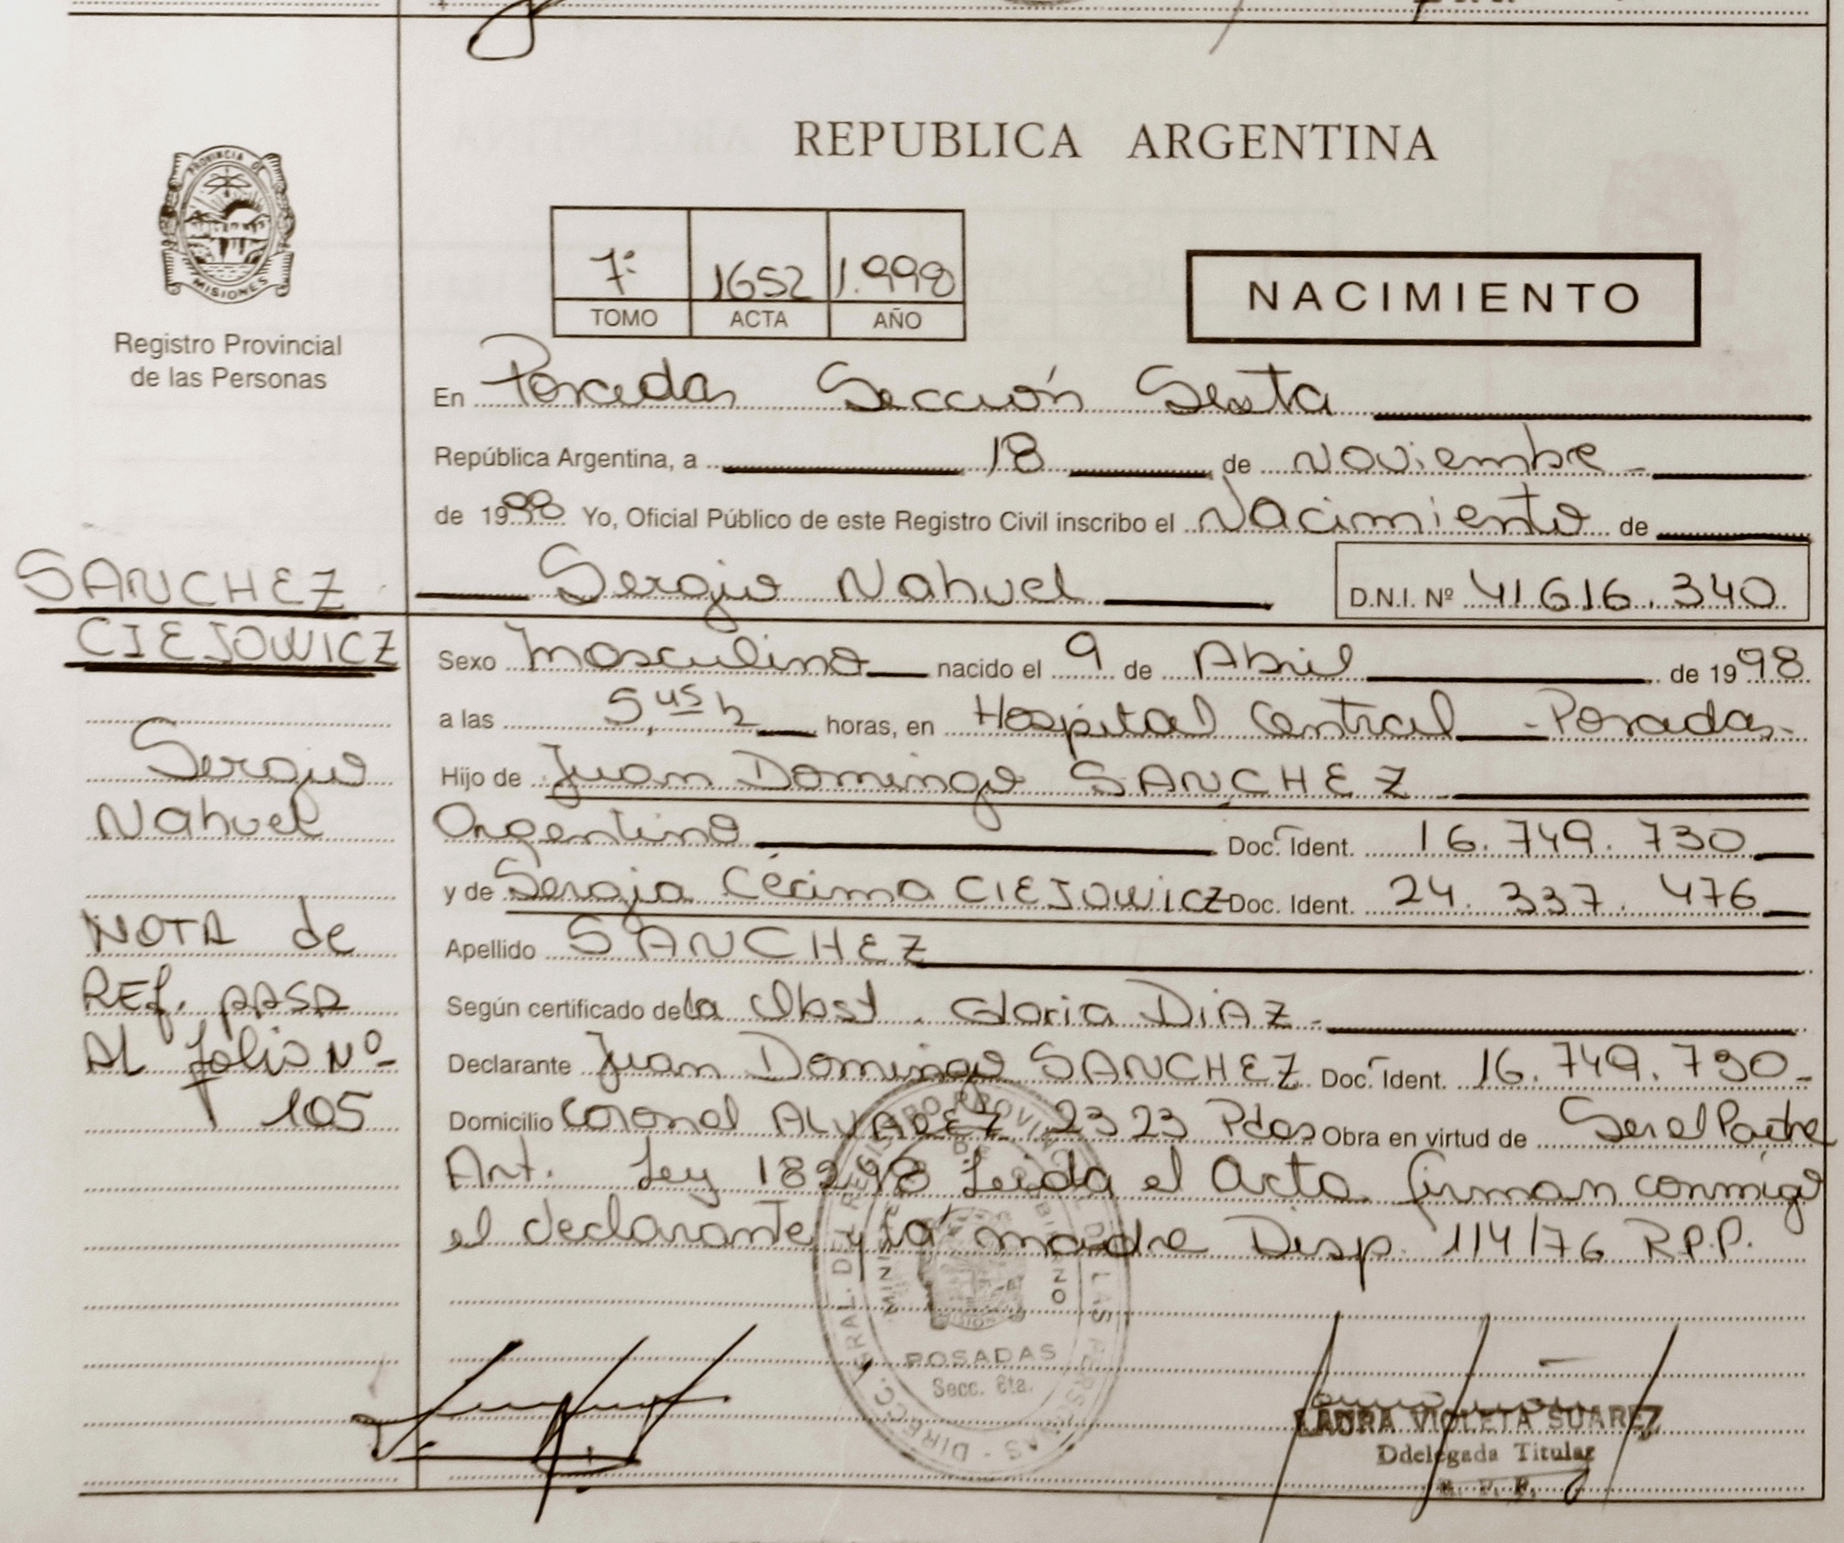 REPUBLICA ARGENTINA
PROVINCIA DE
MISIONES
Registro Provincial
de las Personas
7º 1652 1.998
TOMO ACTA AÑO
NACIMIENTO
En Posadas Sección Sexta
República Argentina, a 18 de Noviembre
de 1998 Yo, Oficial Público de este Registro Civil inscribo el Nacimiento de
SANCHEZ
CIEJOWICZ
Sergio
Nahuel
NOTA de
REf. PASA
AL folio Nº
105
Sergio Nahuel D.N.I. Nº 41.616.340
Sexo Masculino nacido el 9 de Abril de 1998
a las 5,45 h horas, en Hospital Central - Posadas-
Hijo de Juan Domingo SANCHEZ
Argentino Doc. Ident. 16.749.730
y de Sergia CIEJOWICZ Doc. Ident. 24.337.476
Apellido SANCHEZ
Según certificado de la Obst. Gloria DIAZ-
Declarante Juan Domingo SANCHEZ Doc. Ident. 16.749.790-
Domicilio Coronel ALVAREZ 2323 Pdas Obra en virtud de Ser el Padre
Art. Ley 18248 Leida el Acta firman conmigo
el declarante y la madre Disp. 114/76 R.P.P.
POSADAS
Secc. 6ta.
LAURA VIOLETA SUAREZ
Ddelegada Titular
R. P. P.